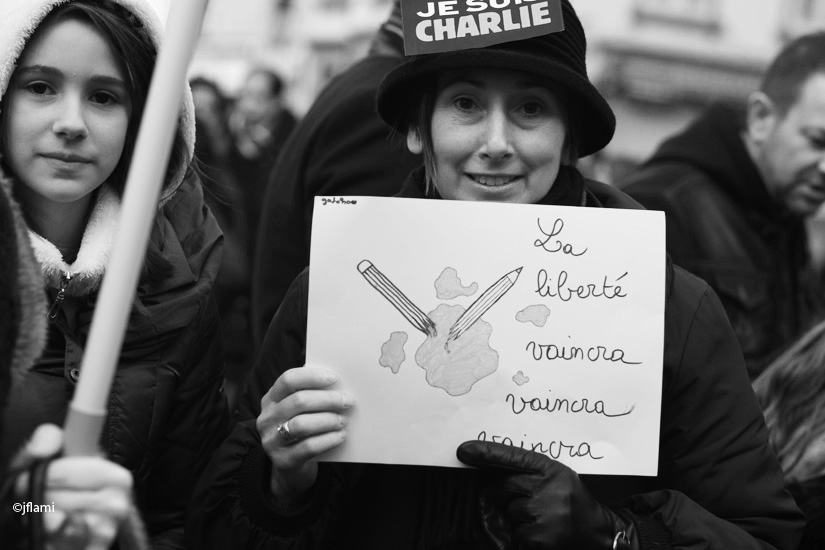 JE SUIS
CHARLIE
La
liberté
vaincra
vaincra
vaincra
©jflami